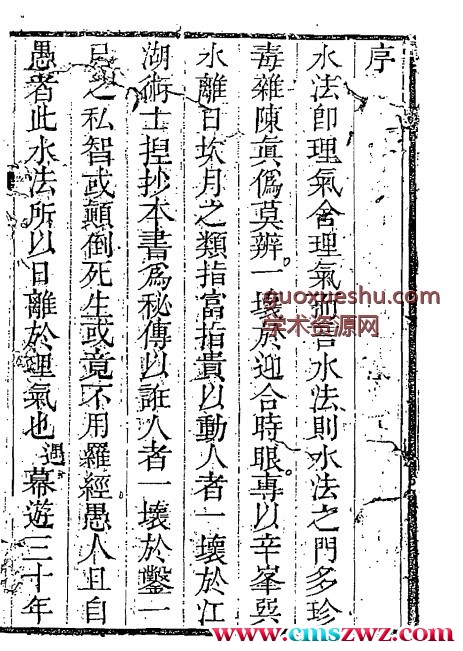 序
水法卽理氣舍理氣而言水法則水法之門多珍
毒雜陳眞僞莫辨。一壞於迎合時眼。專以辛峯巽
水離日坎月之類指富指貴以動人者一壞於江
湖術士捏抄本書爲秘傳以誑人者一壞於鑿一
己之私智或顚倒死生或竟不用羅經愚人且自
愚者此水法所以日離於理氣也遇幕遊三十年
guoxueshu.com
学术资源网
www.cmszwz.com